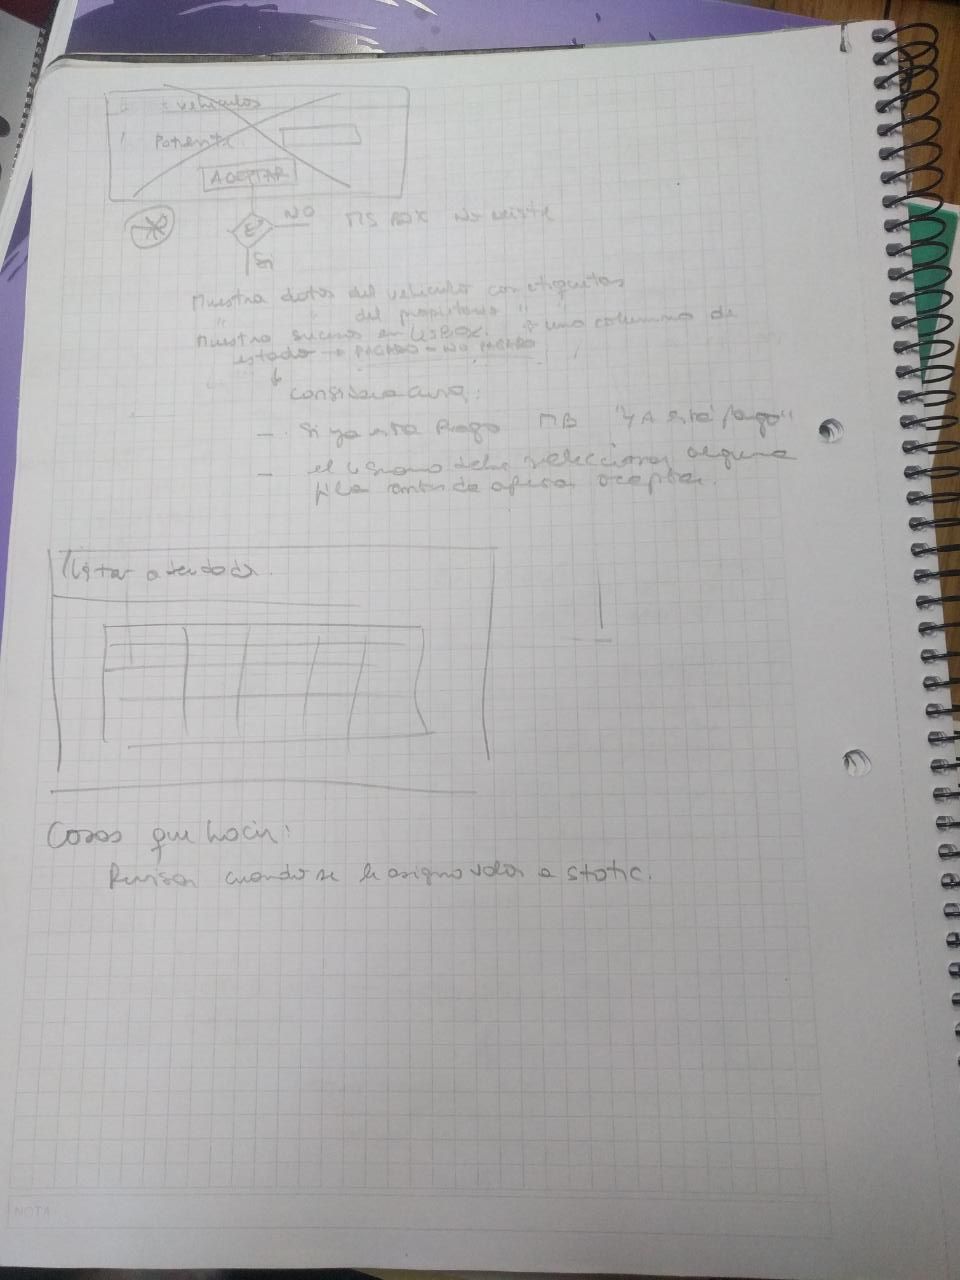 vehículos
Patente
ACEPTAR
NO MSBOX No existe
E?
SI
Muestra datos del vehículo con etiquetas
" " del propietario "
Muestro en LISBOX. una columna de
estado → PAGADO - NO PAGADO
Consideraciones:
- Si ya esta Pago MB "YA está pago"
- el usuario debe seleccionar alguna
fila antes de aceptar.
Listar
Cosas que hacer:
Revisar cuando se le asigno valor a static.
NOTA